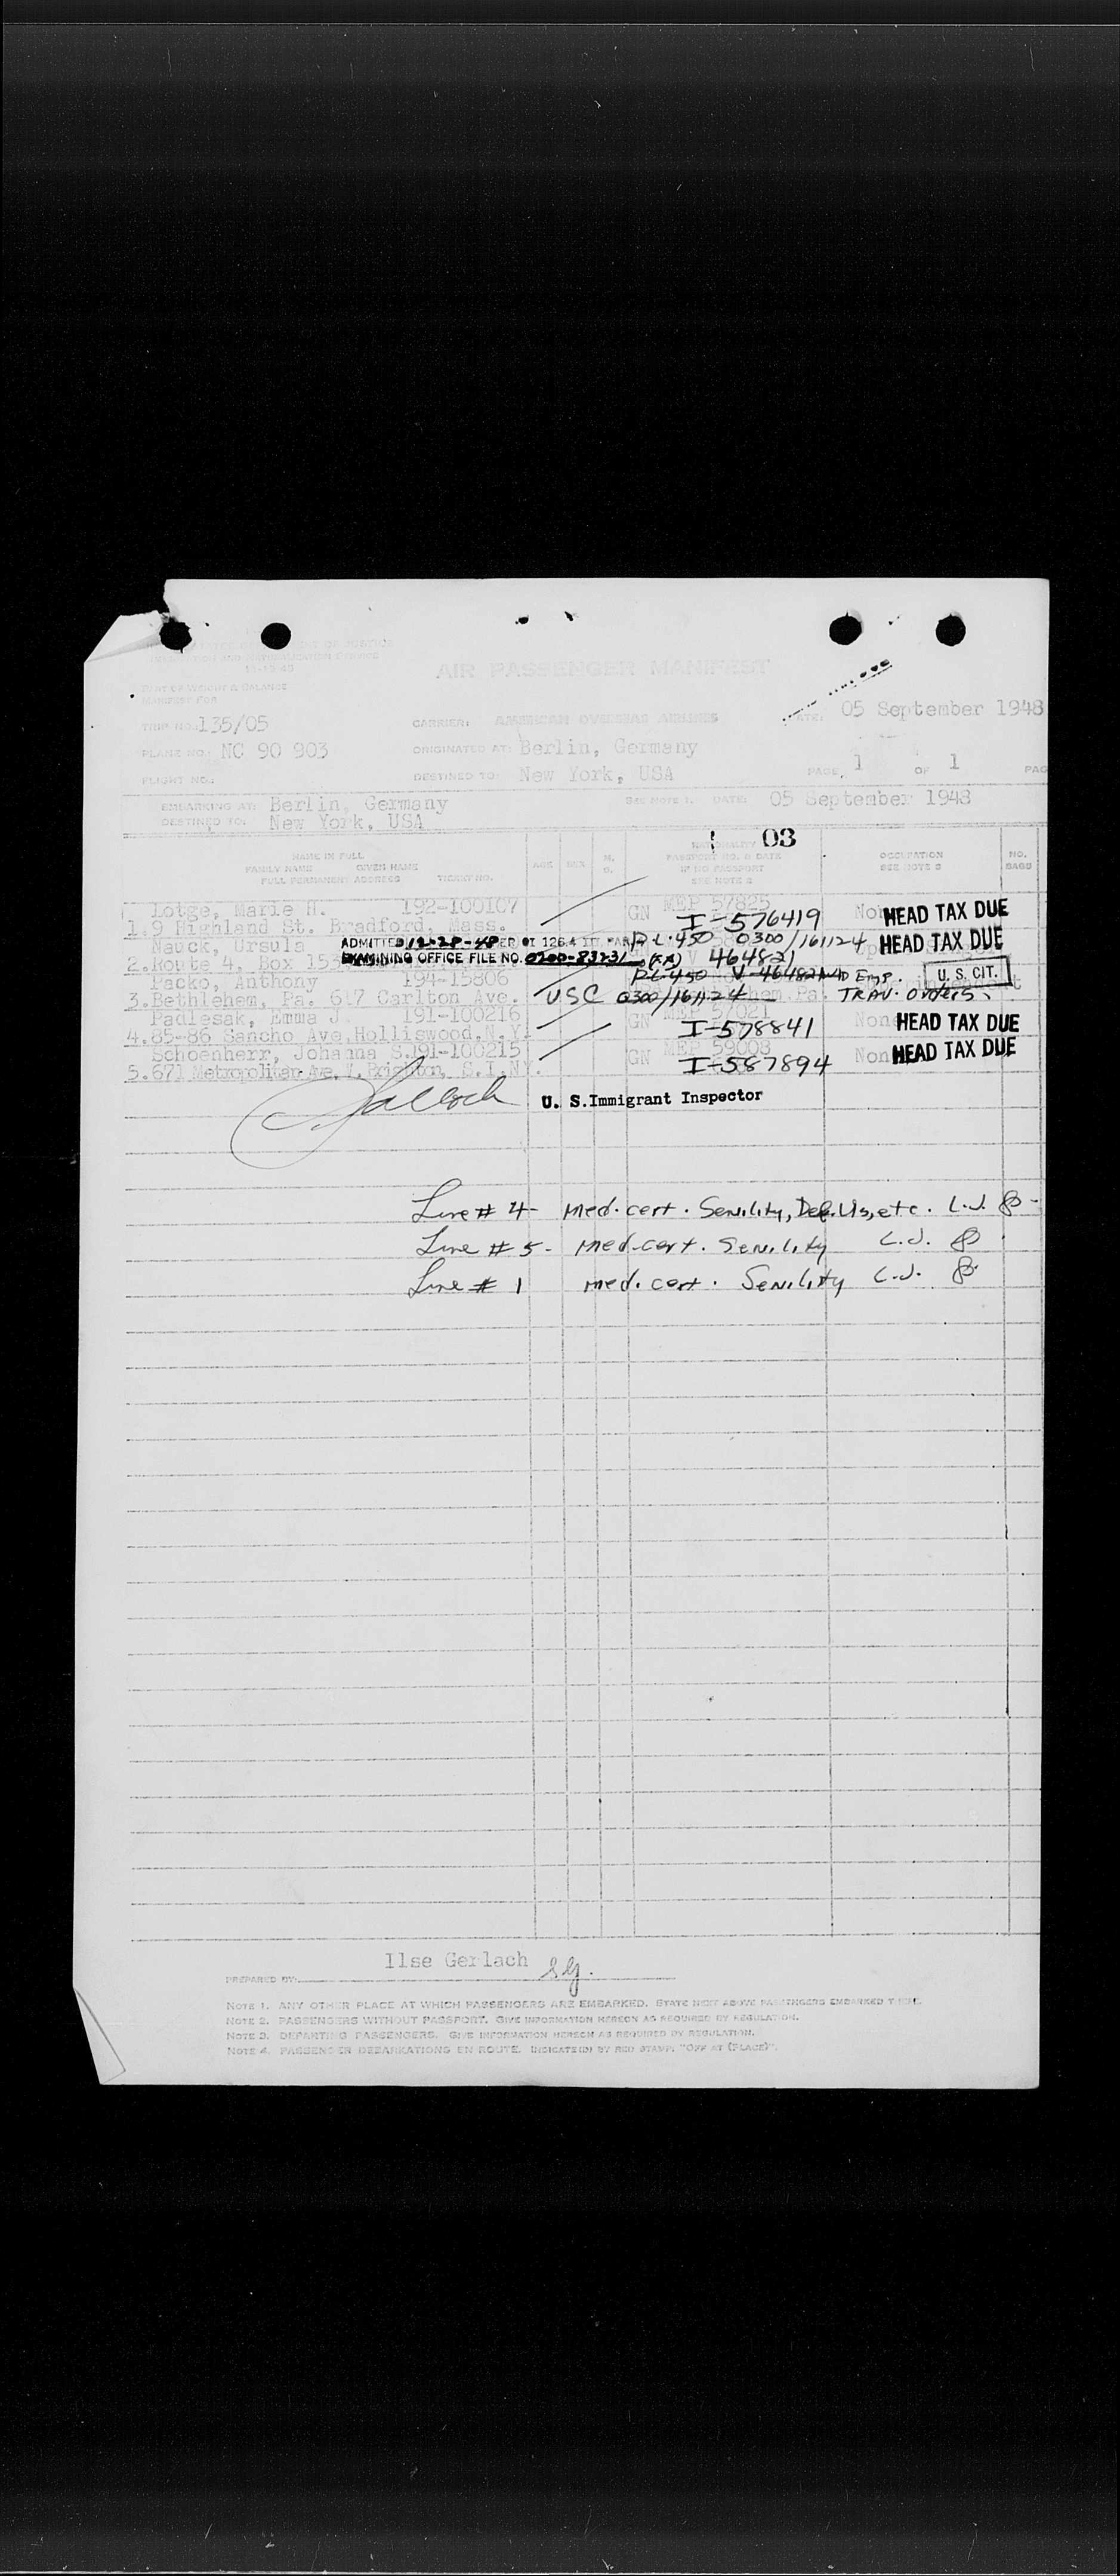 UNITED STATES DEPARTMENT OF JUSTICE
IMMIGRATION AND NATURALIZATION SERVICE
AIR PASSENGER MANIFEST
PART OF WEIGHT & BALANCE
MANIFEST FOR
TRIP NO.: 135/05 CARRIER: AMERICAN OVERSEAS AIRLINES DATE: 05 September 1948
PLANE NO.: NC 90 903 ORIGINATED AT: Berlin, Germany
FLIGHT NO.: DESTINED TO: New York, USA PAGE 1 OF 1 PAG
EMBARKING AT: Berlin, Germany SEE NOTE 1. DATE: 05 September 1948
DESTINED TO: New York, USA
03
NAME IN FULL
FAMILY NAME GIVEN NAME
FULL PERMANENT ADDRESS TICKET NO.
AGE SEX
NATIONALITY
PASSPORT NO. & DATE
IF NO PASSPORT
SEE NOTE 2
OCCUPATION
SEE NOTE 3
NO.
BAGS
Lotge, Marie H. 192-100107 GN MEP 57825
1. 9 Highland St. Bradford, Mass. I-576419 HEAD TAX DUE
Nauck, Ursula ADMITTED PER OT 126.4 P.L. 450 0300/161124 HEAD TAX DUE
2. Route 4, Box EXAMINING OFFICE FILE NO. 0300-83231 464821
Packo, Anthony 194-15806 P.L 450 V-464821 Emp. U. S. CIT.
3. Bethlehem, Pa. 617 Carlton Ave. USC 0300/161124 TRAV. orders
Padlesak, Emma J. 191-100216 GN MEP 57021 None
4. 85-86 Sancho Ave, Holliswood, N.Y. I-578841 HEAD TAX DUE
Schoenherr, Johanna S. 191-100215 GN MEP 59003 None HEAD TAX DUE
5. 671 Metropolitan Ave. W. Brighton, S.I. NY. I-587894
U. S. Immigrant Inspector
Line # 4- Med. cert. Senility, Def. Vis, etc. L.J.
Line # 5- med. cert. Senility L.J.
Line # 1 med. cert. Senility L.J.
PREPARED BY: Ilse Gerlach
NOTE 1. ANY OTHER PLACE AT WHICH PASSENGERS ARE EMBARKED. STATE NEXT ABOVE PASSENGERS EMBARKED THERE.
NOTE 2. PASSENGERS WITHOUT PASSPORT. GIVE INFORMATION HEREON AS REQUIRED BY REGULATION.
NOTE 3. DEPARTING PASSENGERS. GIVE INFORMATION HEREON AS REQUIRED BY REGULATION.
NOTE 4. PASSENGER DEBARKATIONS EN ROUTE. INDICATE(D) BY RED STAMP, "OFF AT (PLACE)".